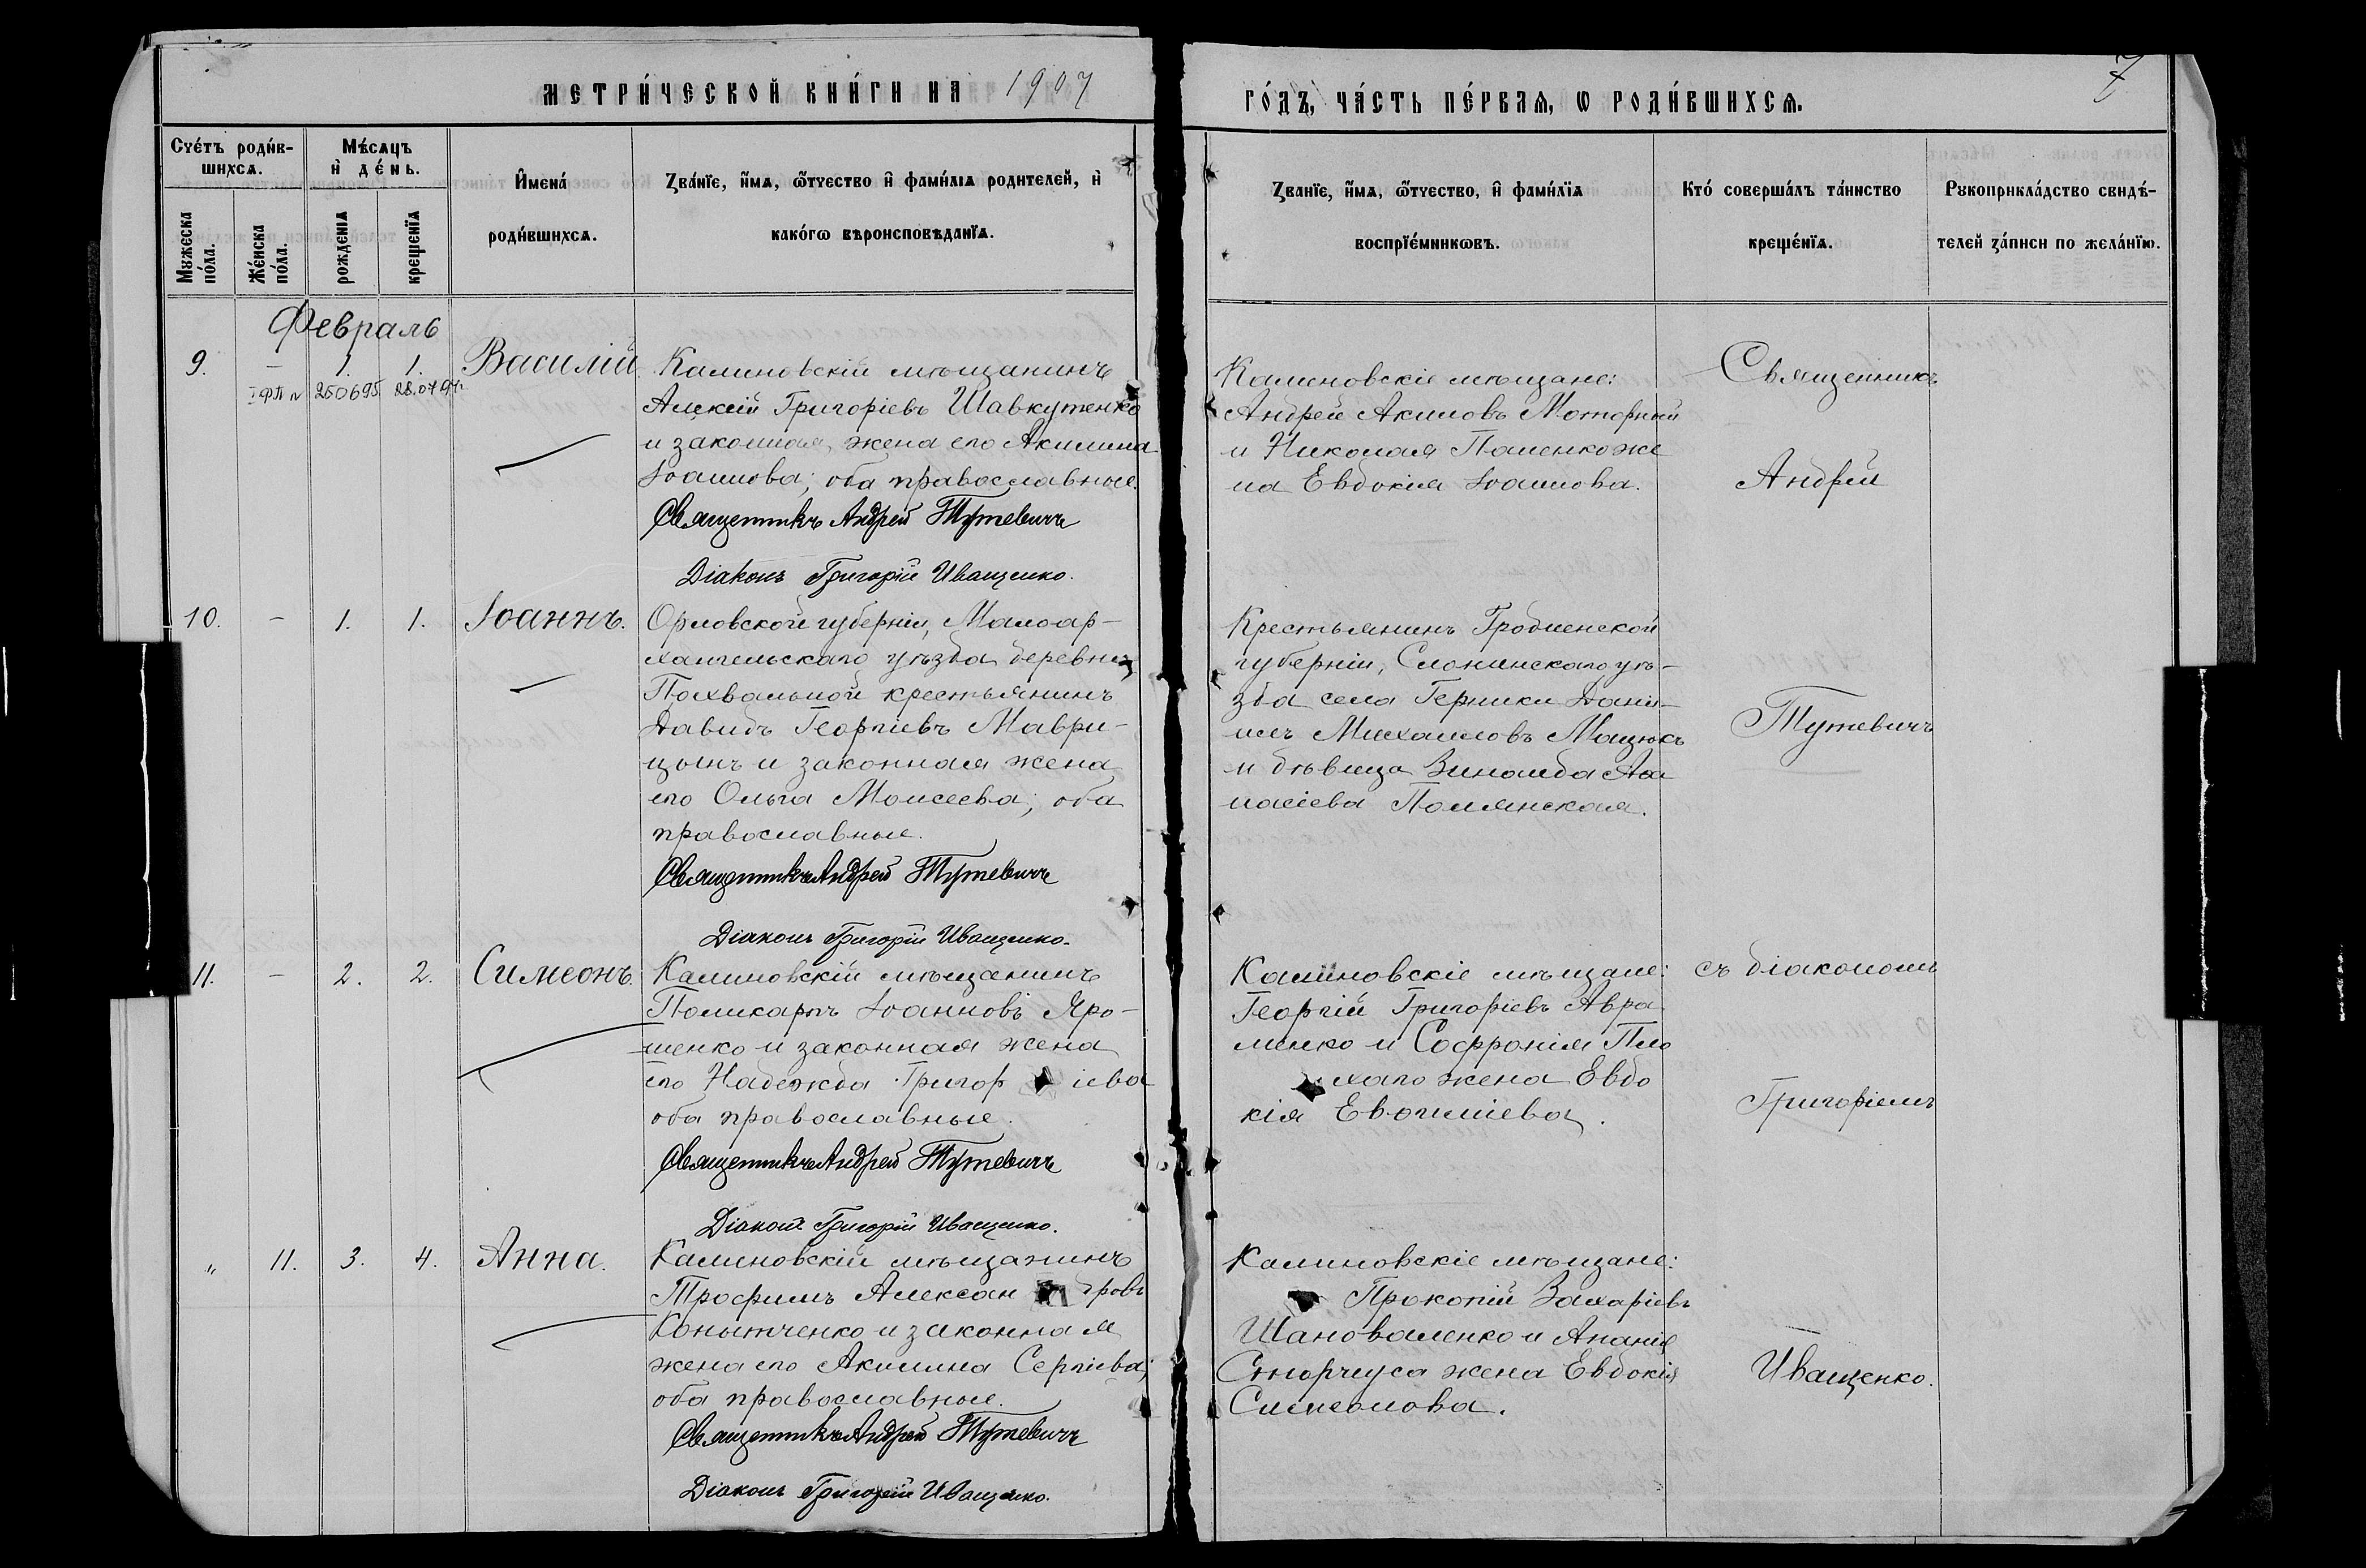 МЕТРИ́ЧЕСКОЙ КНИ́ГИ НА 1907
ГО́ДЪ, ЧА́СТЬ ПЕ́РВАѦ, Ѡ РОДИ́ВШИХСѦ.
7
Сче́тъ роди́в-
шихсѧ.
Мужеска
по́ла.
Же́нска
по́ла.
Мѣ́сѧцъ
и҆ де́нь.
рожденїѧ
крещенїѧ
И҆мена́
роди́вшихсѧ.
Зва́нїе, и҆́мѧ, ѻ҆́тчество и҆ фами́лїѧ родителей, и҆
како́гѡ вѣроисповѣданїѧ.
Званїе, и҆́мѧ, ѻ҆́тчество, и҆ фами́лїѧ
воспрїе́мникѡвъ.
Кто́ соверша́лъ та́инство
креще́нїѧ.
Рукоприкла́дство свидѣ́-
телей за́писи по жела́нїю.
Февраль
9. — 1. 1. Василій.
I ФП № 250695 28.07.
Калиновскій мѣщанинъ
Алексій Григоріевъ Шавкутенко
и законная жена его Акилина
Іоаннова; оба православные.
Священникъ Андрей Тутевичъ
Діаконъ Григорій Иващенко.
Калиновскіе мѣщане:
Андрей Акимовъ Моторный
и Николая Паленко же
на Евдокія Іоаннова.
Священникъ
Андрей
10. — 1. 1. Іоаннъ.
Орловской губерніи, Малоар-
хангельскаго уѣзда деревни
Похвальной крестьянинъ
Давидъ Георгіевъ Маври-
цынъ и законная жена
его Ольга Моисеева; оба
православные.
Священникъ Андрей Тутевичъ
Діаконъ Григорій Иващенко.
Крестьянинъ Гродненской
губерніи, Слонимскаго уѣ-
зда села Герники Дани-
илъ Михаиловъ Мацукъ
и дѣвица Зинаида
Полянская.
Тутевичъ
11. — 2. 2. Симеонъ.
Калиновскій мѣщанинъ
Поликарпъ Іоанновъ Яро-
шенко и законная жена
его Надежда Григоріева
оба православные.
Священникъ Андрей Тутевичъ
Діаконъ Григорій Иващенко.
Калиновскіе мѣщане:
Георгій Григоріевъ Авра
менко и Софронія Пло
хаго жена Евдо
кія
съ діакономъ
Григоріемъ
„ 11. 3. 4. Анна.
Калиновскій мѣщанинъ
Трофимъ Александровъ
Копытченко и законная
жена его Акилина Сергіева;
оба православные.
Священникъ Андрей Тутевичъ
Діаконъ Григорій Иващенко.
Калиновскіе мѣщане:
Прокопій Захаріевъ
Шановаленко и Ананія
жена Евдокія
Симеонова.
Иващенко.